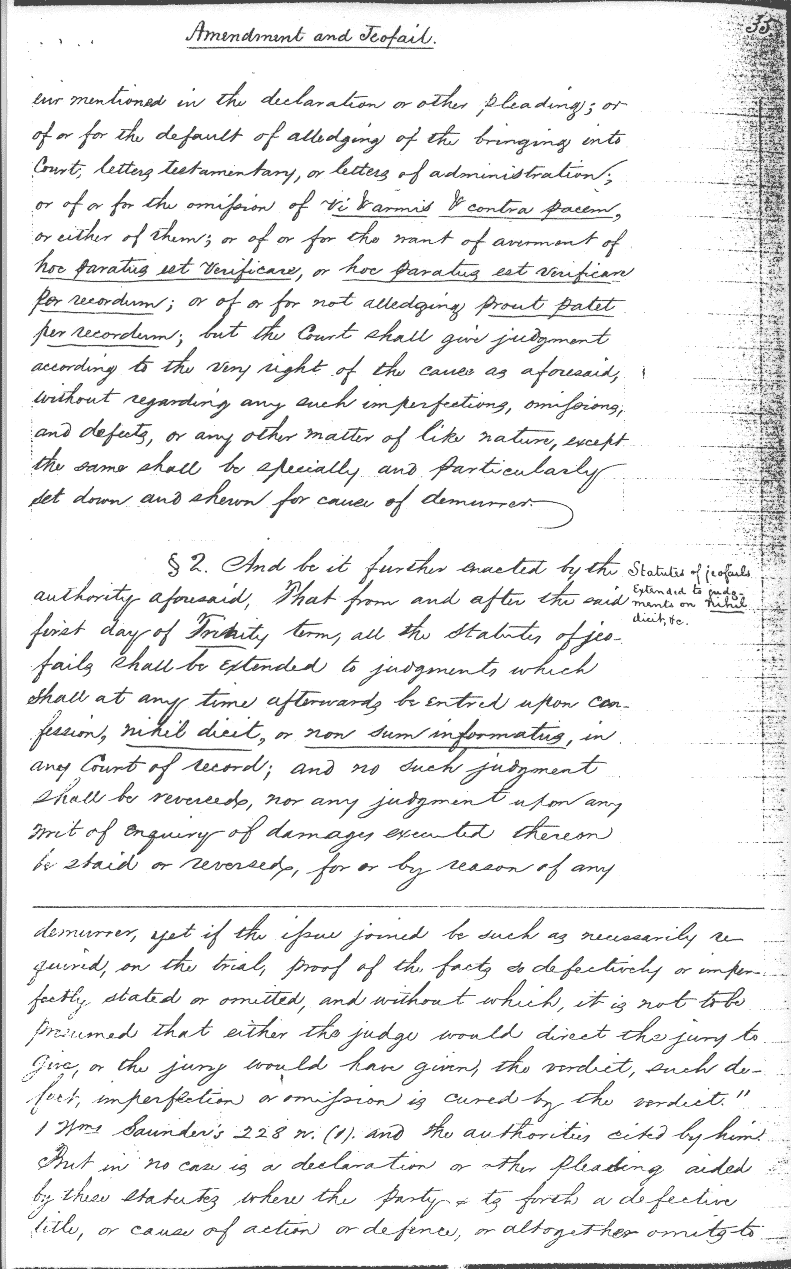 35
Amendment and Jeofail.
eur mentioned in the declaration or other pleading; or
of or for the default of alledging of the bringing into
Court, letters testamentary, or letters of administration;
or of or for the omission of Vi & armis & contra pacem,
or either of them; or of or for the want of averment of
hoc paratus est verificare, or hoc paratus est verificare
per recordum; or of or for not alledging prout patet
per recordum; but the Court shall give judgment
according to the very right of the cause as aforesaid,
without regarding any such imperfections, omissions,
and defects, or any other matter of like nature, except
the same shall be specially and particularly
set down and shewn for cause of demurrer.
§ 2. And be it further enacted by the
authority aforesaid, That from and after the said
first day of Trinity term, all the statutes of jeo-
fails shall be extended to judgments which
shall at any time afterwards be entred upon con-
fession, nihil dicit, or non sum informatus, in
any Court of record; and no such judgment
shall be reversed, nor any judgment upon any
writ of enquiry of damages executed thereon
be staid or reversed, for or by reason of any
Statutes of jeofails
extended to judg-
ments on nihil
dicit, &c.
demurrer, yet if the issue joined be such as necessarily re-
quired, on the trial, proof of the facts so defectively or imper-
fectly stated or omitted, and without which, it is not to be
presumed that either the judge would direct the jury to
give, or the jury would have given, the verdict, such de-
fect, imperfection or omission is cured by the verdict."
1 Wms Saunders 228 n. (1). and the authorities cited by him.
But in no case is a declaration or other pleading aided
by these statutes where the party sets forth a defective
title, or cause of action or defence, or altogether omits to